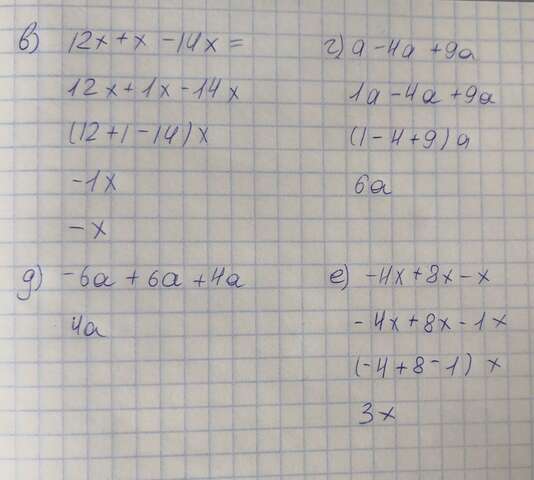 в) 12x + x - 14x =
12x + 1x - 14x
(12 + 1 - 14) x
-1x
- x
г) a - 4a + 9a
1a - 4a + 9a
(1 - 4 + 9) a
6a
д) -6a + 6a + 4a
4a
е) -4x + 8x - x
- 4x + 8x - 1x
(-4 + 8 - 1) x
3x